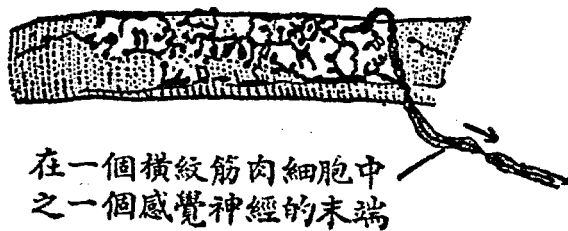 在一個橫紋筋肉細胞中
之一個感覺神經的末端